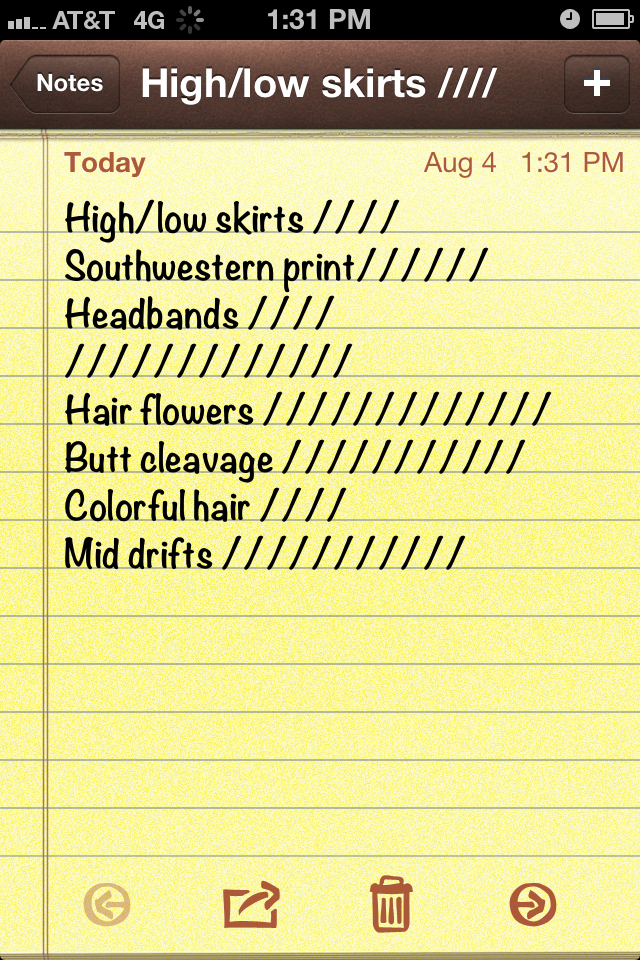 AT&T 4G 1:31 PM
Notes High/low skirts //// +
Today Aug 4 1:31 PM
High/low skirts ////
Southwestern print//////
Headbands ////
/////////////
Hair flowers /////////////
Butt cleavage ///////////
Colorful hair ////
Mid drifts ///////////